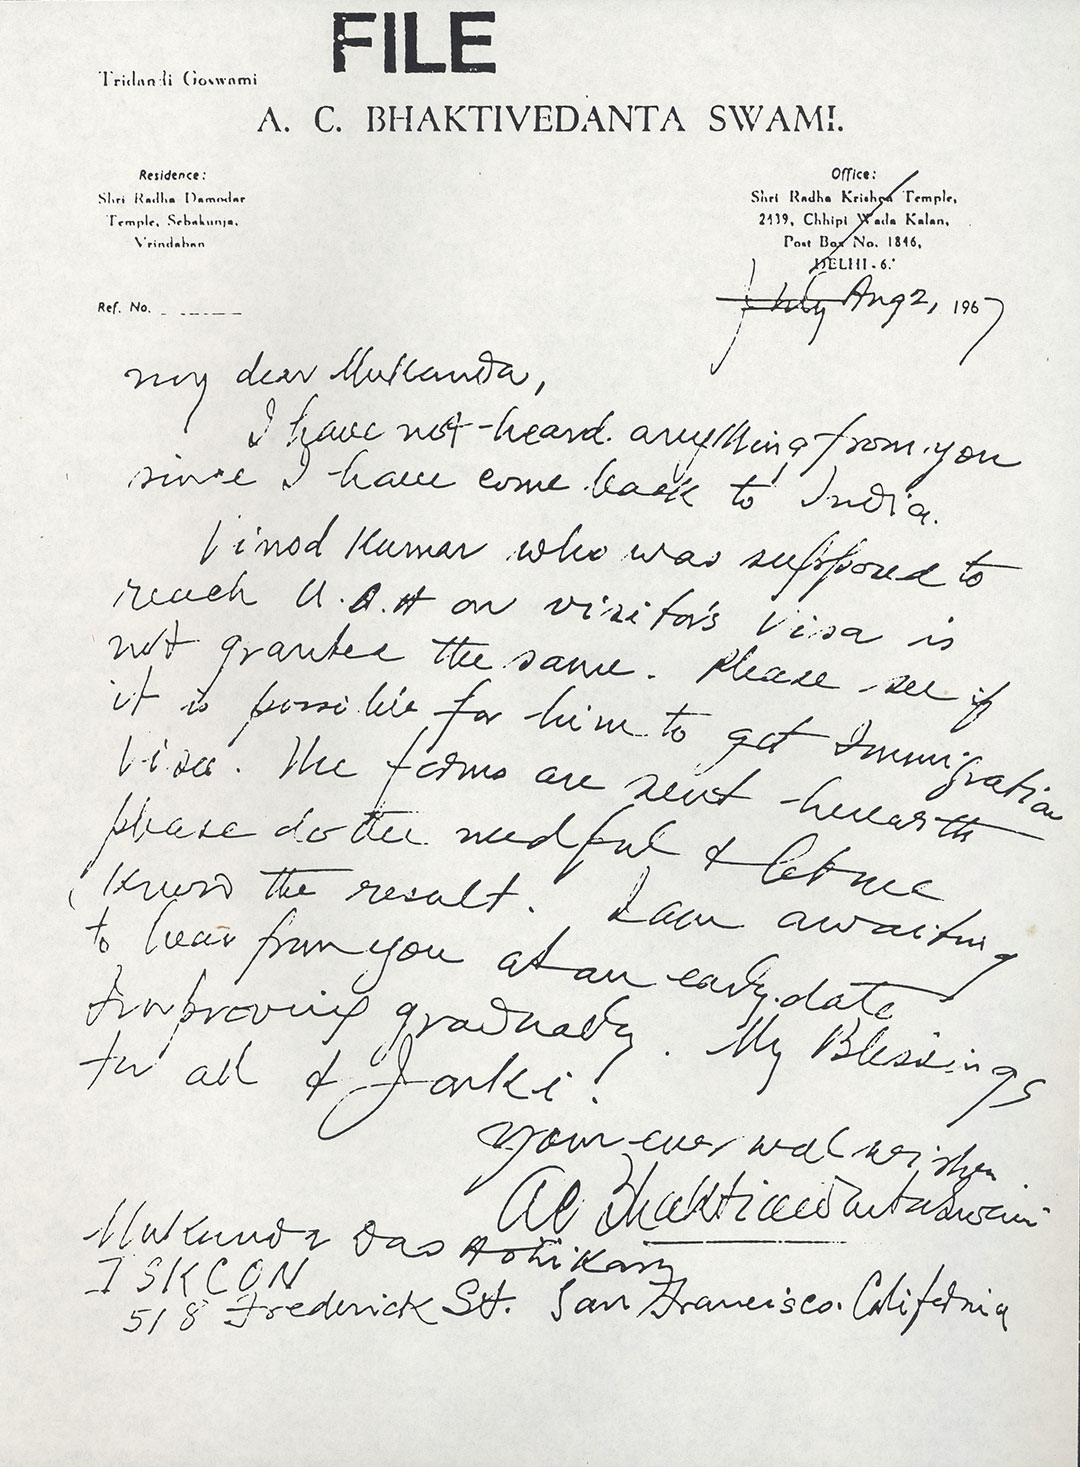 FILE
Tridandi Goswami
A. C. BHAKTIVEDANTA SWAMI.
Residence:
Shri Radha Damodar
Temple, Sebakunja,
Vrindaban
Office:
Shri Radha Krishna Temple,
2439, Chhipi Wada Kalan,
Post Box No. 1846,
DELHI-6.
Ref. No.
July Aug 2, 1967
my dear Mukunda,
I have not heard anything from you
since I have come back to India.
Vinod Kumar who was supposed to
reach U.S.A on visitor's Visa is
not granted the same. Please see if
it is possible for him to get Immigration
Visa. The forms are sent herewith
please do the needful & let me
know the result. I am awaiting
to hear from you at an early date
Improving gradually. My Blessings
for all & Janki.
Your ever well wisher
AC Bhaktivedanta Swami
Mukunda Das Adhikary
ISKCON
518 Frederick St. San Francisco. California